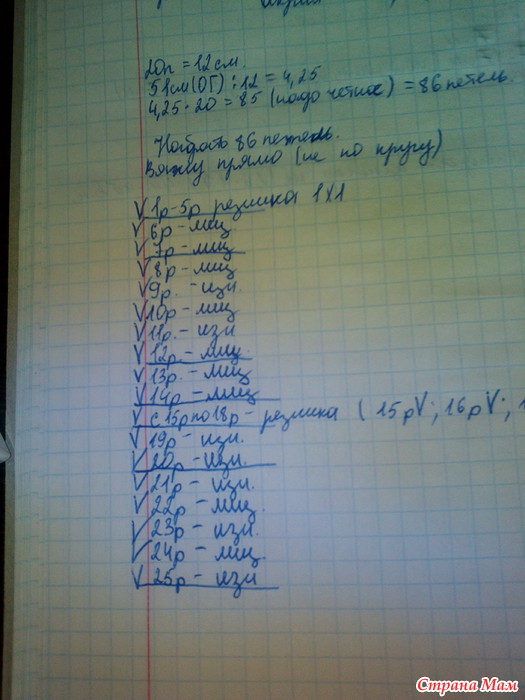 20п = 12 см.
51см(ОГ) : 12 = 4,25
4,25 · 20 = 85 (надо четное) = 86 петель.
Набрать 86 петель.
Вяжу прямо (не по кругу)
V 1р-5р резинка 1х1
V 6р - лиц
V 7р - лиц
V 8р - лиц
V 9р. - изн.
V 10р - лиц
V 11р. - изн
V 12р. - лиц.
V 13р. - лиц
V 14р - лиц
V с 15р по 18р - резинка ( 15рV; 16рV; 1
V 19р - изн.
V 20р - изн.
V 21р - изн.
V 22р - лиц.
V 23р - изн.
V 24р - лиц
V 25р - изн
Страна Мам